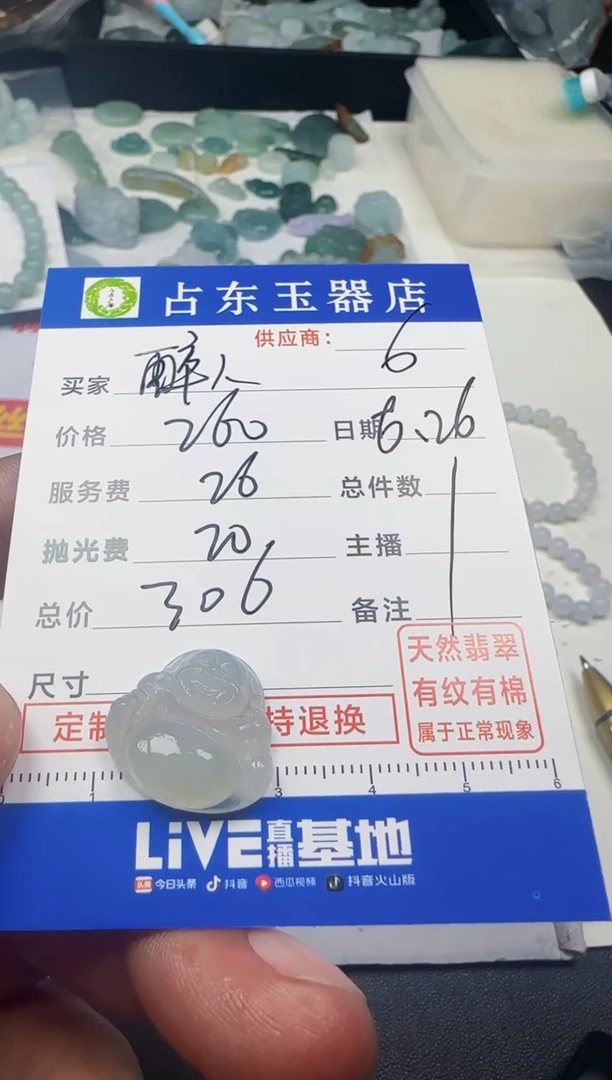 占东玉器店
供应商: 6
买家 醉人
价格 260 日期 6.26
服务费 26 总件数 1
抛光费 20
主播
总价 306 备注
尺寸
天然翡翠
有纹有棉
属于正常现象
定制 持退换
1 3 4 5 6
LiVE直播基地
头条 今日头条 抖音 西瓜视频 抖音火山版